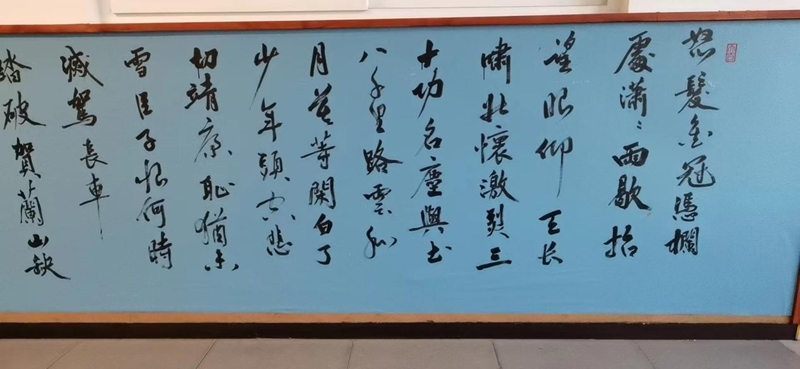 怒髮衝冠憑欄
處瀟〻雨歇抬
望眼仰天长
嘯壯懷激烈三
十功名塵與土
八千里路雲和
月莫等閑白了
少年頭空悲
切靖康恥猶未
雪臣子恨何時
滅駕長車
踏破賀蘭山缺